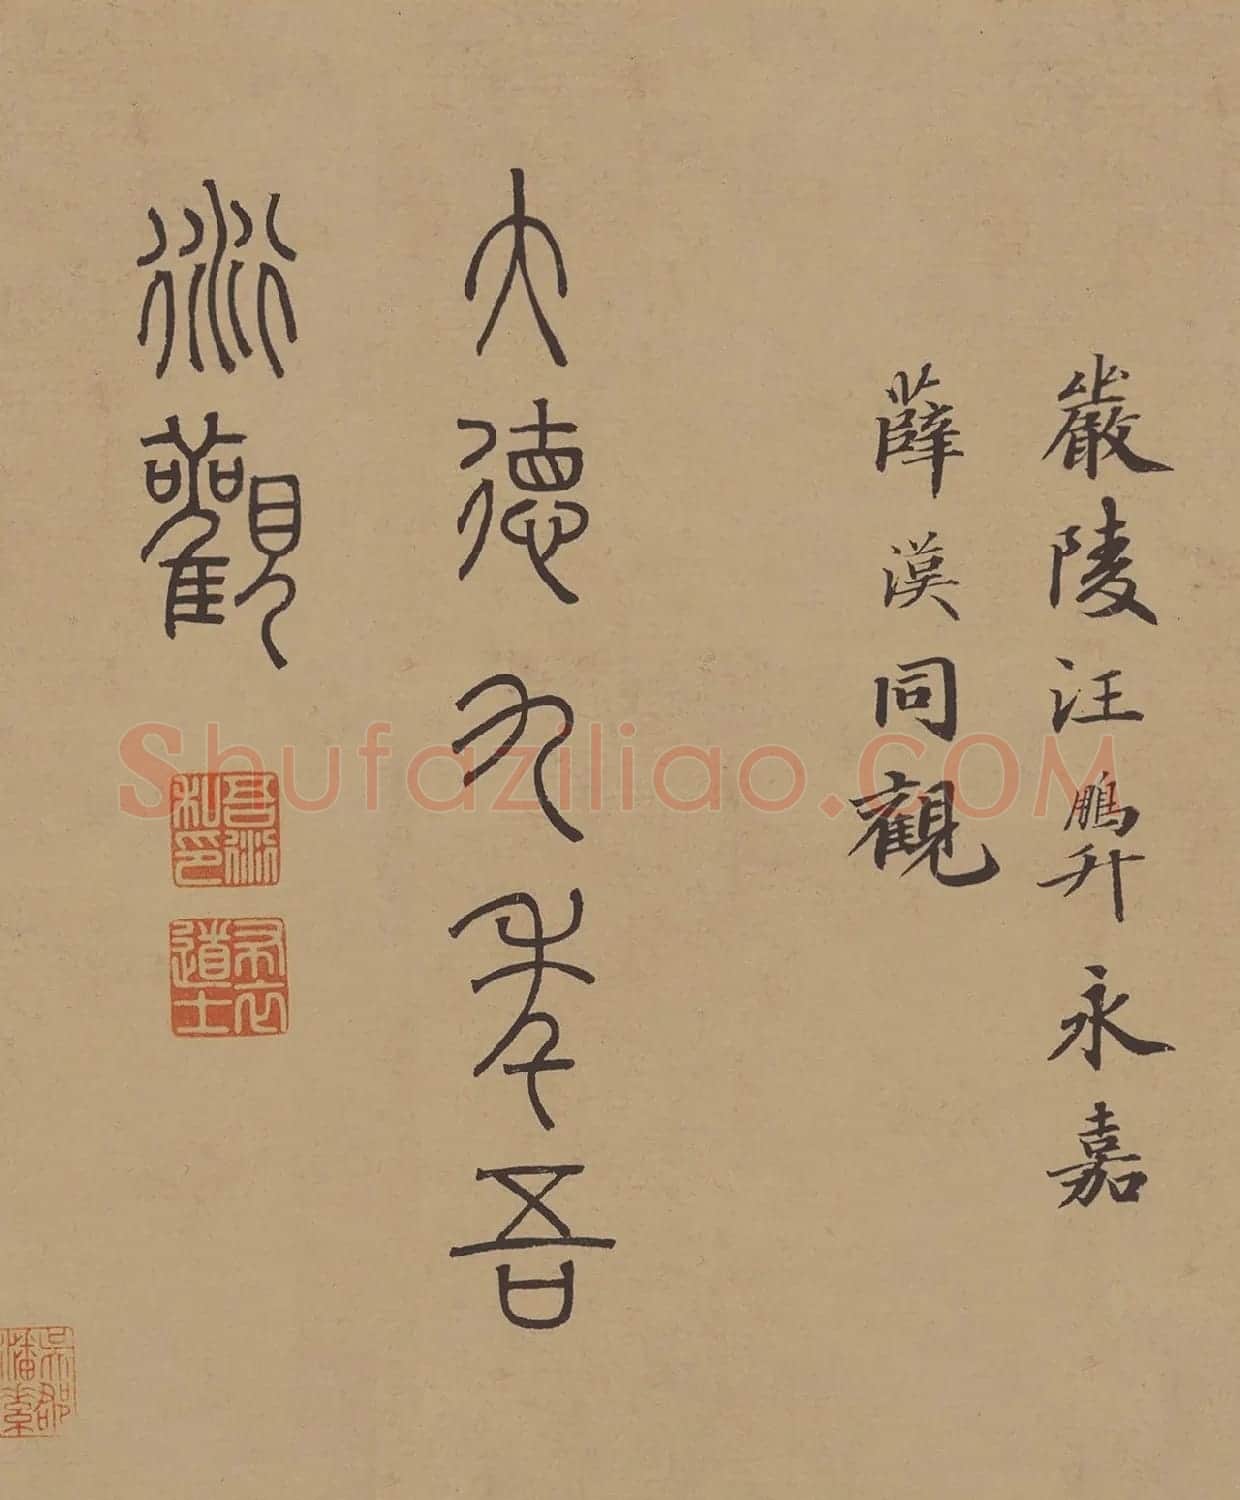 嚴陵汪鵬升永嘉
薛漢同觀
大德九年吾
衍觀
吾衍私印
布衣道士
吳郡
Shufaziliao.COM